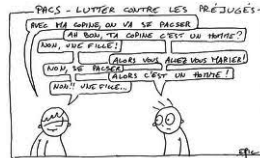 PACS - LUTTER CONTRE LES PRÉJUGÉS -
AVEC MA COPINE, ON VA SE PACSER
AH BON, TA COPINE C'EST UN HOMME?
NON, UNE FILLE!
ALORS VOUS ALLEZ VOUS MARIER!
NON, SE PACSER!
ALORS C'EST UN HOMME!
NON!! UNE FILLE...